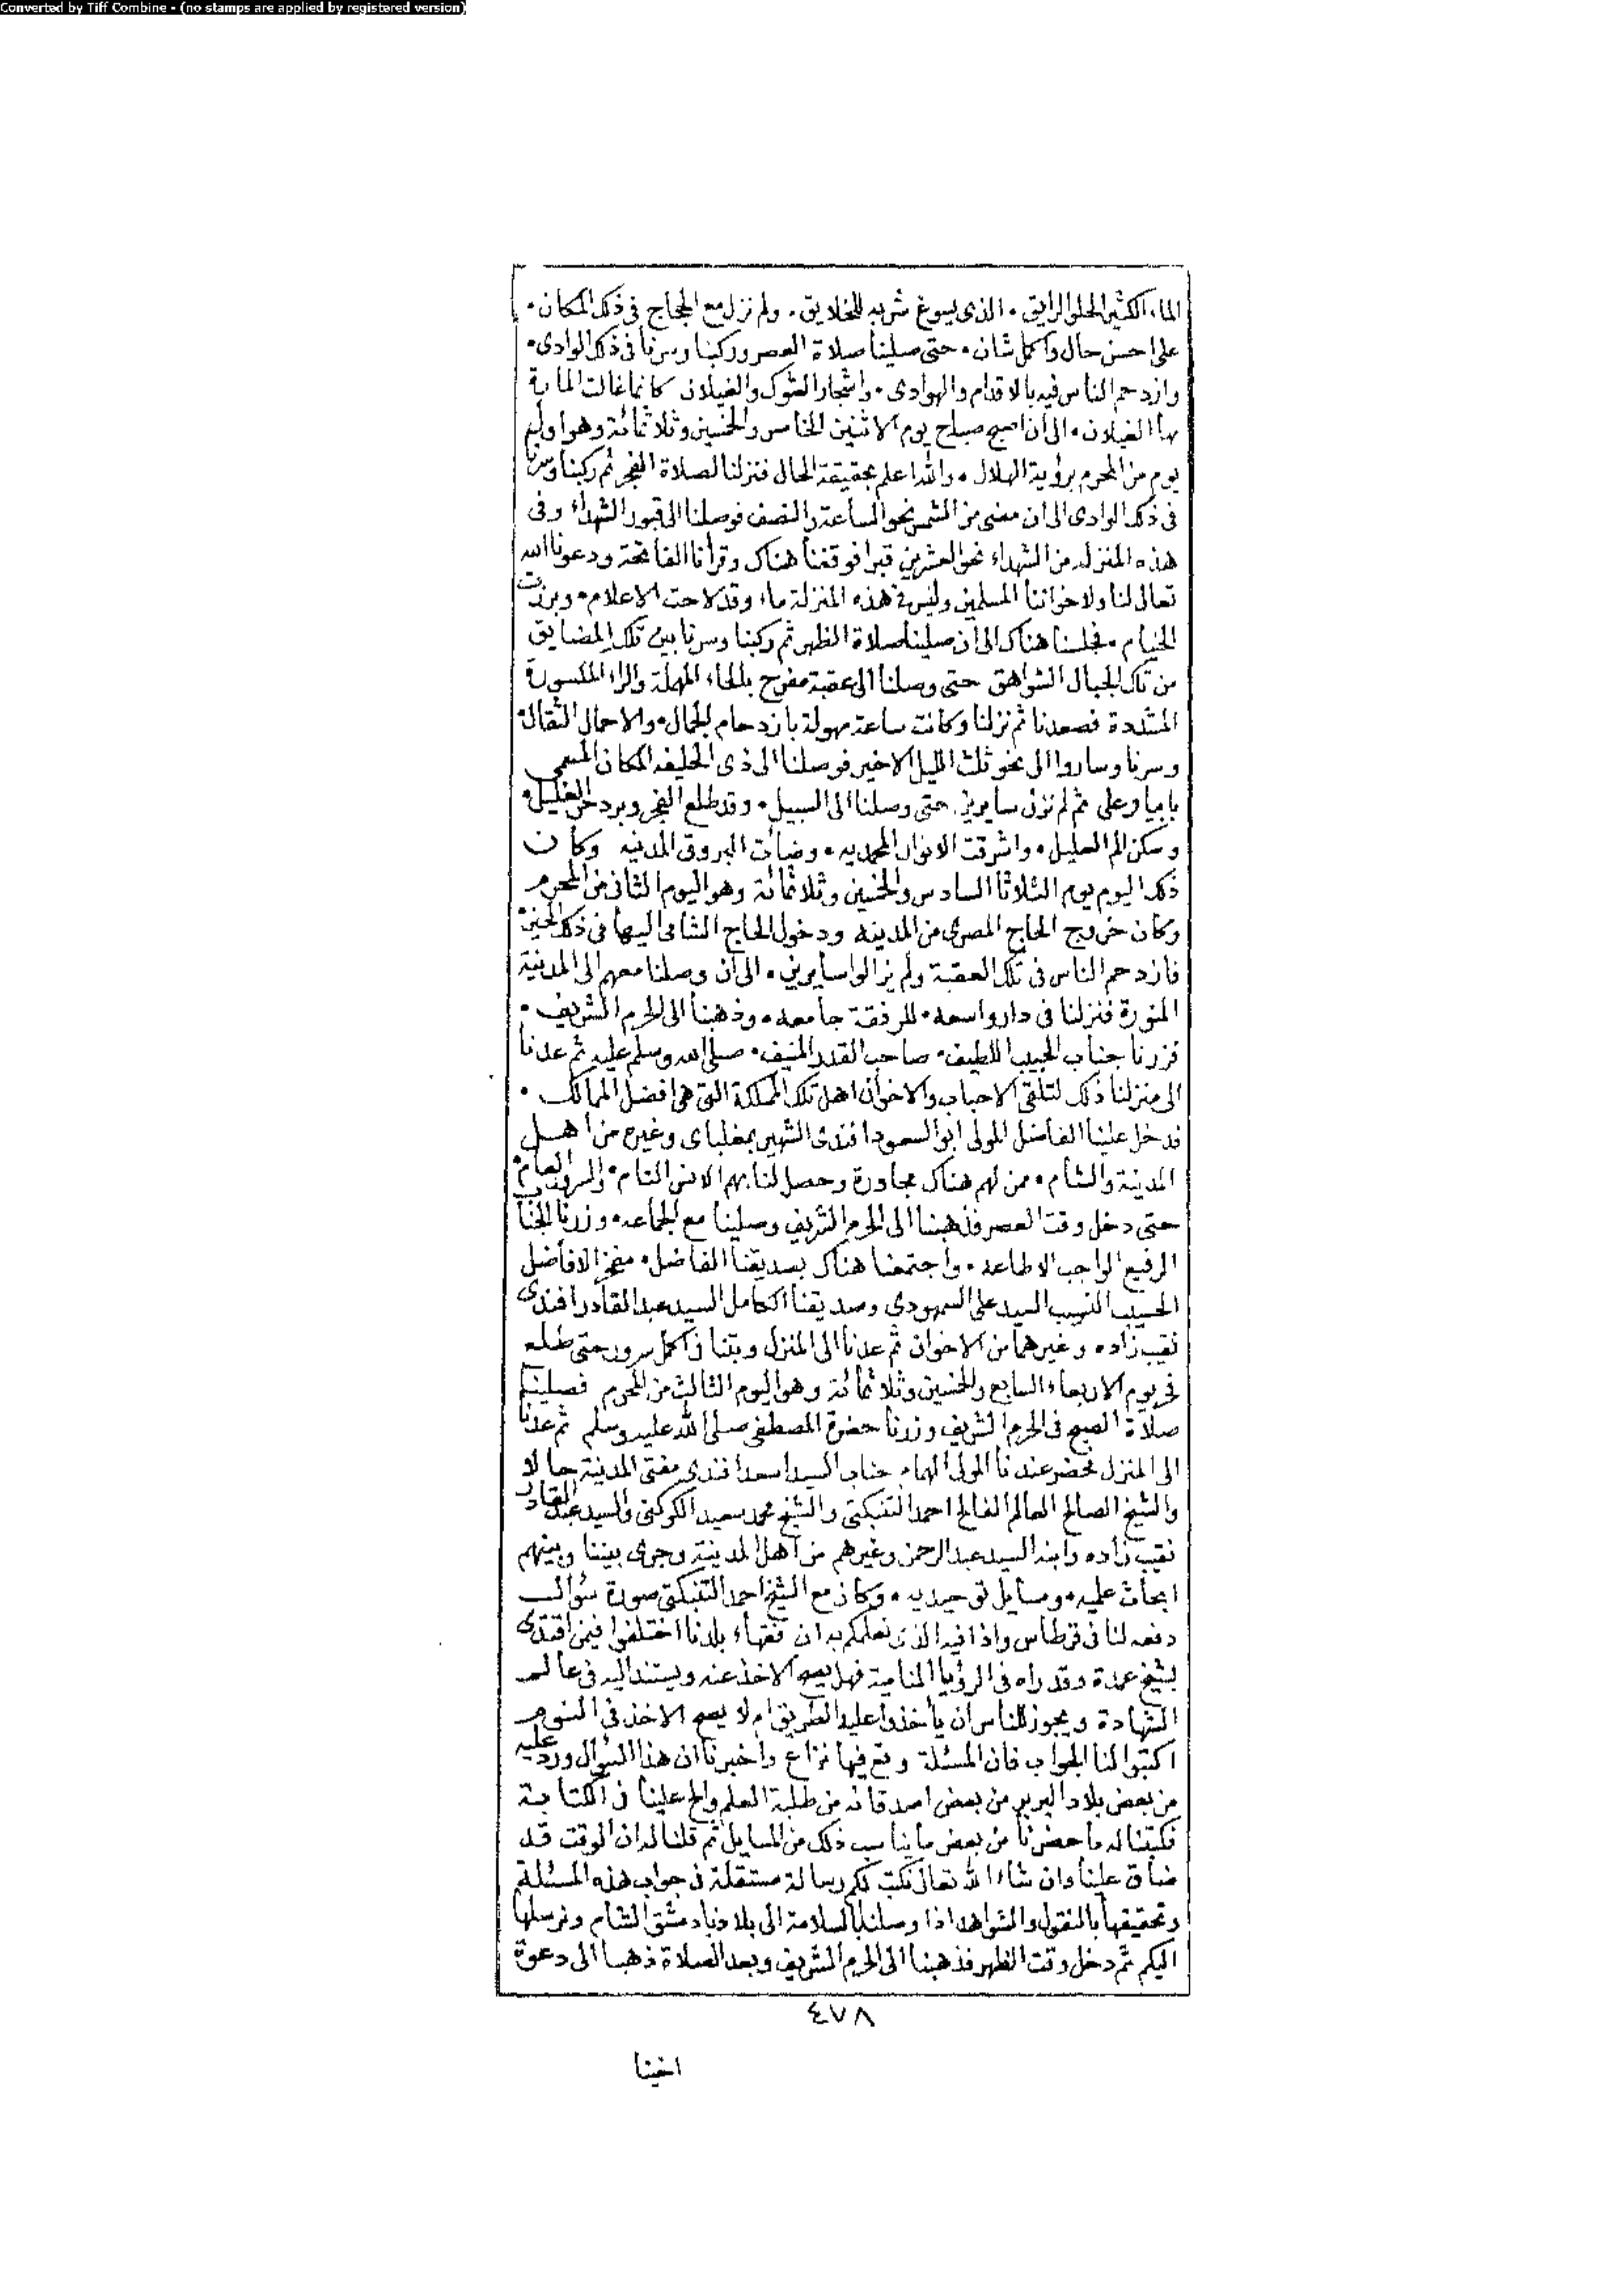 Converted by Tiff Combine - (no stamps are applied by registered version)
الماء الكثير الحلو الرايق • الذى يسوغ شربه للخلايق • ولم نزل مع الحجاج فى ذلك المكان •
على احسن حال واكمل شان • حتى صلينا صلاة العصر وركبنا وسرنا فى ذلك الوادى •
وازدحم الناس فيه بالاقدام والهوادى • واشجار الشوك والغيلان كانما غالت المارة
بها الغيلان • الى أن اصبح صباح يوم الاثنين الخامس والخمسين وثلاثمائة وهو اول
يوم من المحرم برؤية الهلال • والله اعلم بحقيقة الحال فنزلنا لصلاة الفجر ثم ركبنا وسرنا
فى ذلك الوادى الى ان مضى من الشمس نحو الساعة والنصف فوصلنا الى قبور الشهداء وفى
هذه المنزلة من الشهداء نحو العشرين قبرا فوقفنا هناك وقرأنا الفاتحة ودعونا الله
تعالى لنا ولاخواننا المسلمين وليس فى هذه المنزلة ماء وقد لاحت الاعلام • وبرزت
الخيام • فجلسنا هناك الى أن صلينا صلاة الظهر ثم ركبنا وسرنا بين تلك المضايق
من تلك الجبال الشواهق حتى وصلنا الى عقبة مفرح بالحاء المهملة والراء المكسورة
المشددة فصعدنا ثم نزلنا وكانت ساعة مهولة بازدحام الجمال • والاحمال الثقالة
وسرنا وساروا الى نحو ثلث الليل الاخير فوصلنا الى ذى الحليفه المكان المسمى
بابيار على ثم لم نزل سايرين حتى وصلنا الى السبيل • وقد طلع الفجر وبرد حر الغليل •
وسكن الم العليل • واشرقت الانوار المحمديه • وضائت البروق المدنيه وكان
ذلك اليوم يوم الثلاثا السادس والخمسين وثلاثمائة وهو اليوم الثانى من المحرم
وكان خروج الحاج المصرى من المدينه ودخول الحاج الشامى اليها فى ذلك الحين
فازدحم الناس فى تلك العقبة ولم يزالوا سايرين • الى ان وصلنا معهم الى المدينة
المنورة فنزلنا فى دار واسعه • للرفقة جامعه • وذهبنا الى الحرم الشريف •
فزرنا جناب الحبيب اللطيف • صاحب القدر المنيف • صلى الله وسلم عليه ثم عدنا
الى منزلنا ذلك لتلقى الاحباب والاخوان اهل تلك المملكة التى هى افضل الممالك •
فدخل علينا الفاضل المولى ابو السعود افندى الشهير بمغلباى وغيره من أهل
المدينة والشام • ممن لهم هناك مجاورة وحصل لنا بهم الانس التام • والسرور العام •
حتى دخل وقت العصر فذهبنا الى الحرم الشريف وصلينا مع الجماعه • وزرنا الجناب
الرفيع الواجب الاطاعه • واجتمعنا هناك بصديقنا الفاضل • مفخر الافاضل
الحسيب النسيب السيد على السمهودى وصديقنا الكامل السيد عبد القادر افندى
نقيب زاده وغيرهما من الاخوان ثم عدنا الى المنزل وبتنا فى اكمل سرور حتى طلع
فجر يوم الاربعاء السابع والخمسين وثلاثمائة وهو اليوم الثالث من المحرم فصلينا
صلاة الصبح فى الحرم الشريف وزرنا حضرة المصطفى صلى الله عليه وسلم ثم عدنا
الى المنزل فحضر عندنا المولى الهمام جناب السيد اسعد افندى مفتى المدينة حالا
والشيخ الصالح العالم الفالح احمد التنبكتى والشيخ محمد سعيد الكوكنى والسيد عبد القادر
نقيب زاده وابنه السيد عبد الرحمن وغيرهم من أهل المدينة وجرى بيننا وبينهم
ابحاث علميه • ومسايل توحيديه • وكان مع الشيخ احمد التنبكتى صورة سؤال
دفعه لنا فى قرطاس واذا فيه الذى نعلمكم به ان فقهاء بلدنا اختلفوا فيمن اقتدى
بشيخ عمدة وقد راه فى الرؤيا المنامية فهل يصح الاخذ عنه ويستند اليه فى عالم
الشهادة ويجوز للناس ان يأخذوا عليه الطريق ام لا يصح الاخذ فى النوم
اكتبوا لنا الجواب فان المسئلة وقع فيها نزاع واخبرنا ان هذا السؤال ورد عليه
من بعض بلاد البربر من بعض اصدقائه من طلبة العلم والح علينا فى الكتابة
فكتبنا له ما حضرنا من بعض ما يناسب ذلك من المسايل ثم قلنا له ان الوقت قد
ضاق علينا وان شاء الله تعالى نكتب لكم رسالة مستقلة فى جواب هذه المسئلة
وتحقيقها بالنقول والشواهد اذا وصلنا بالسلامة الى بلادنا دمشق الشام ونرسلها
اليكم ثم دخل وقت الظهر فذهبنا الى الحرم الشريف وبعد الصلاة ذهبنا الى دعوة
٤٧٨
اخينا